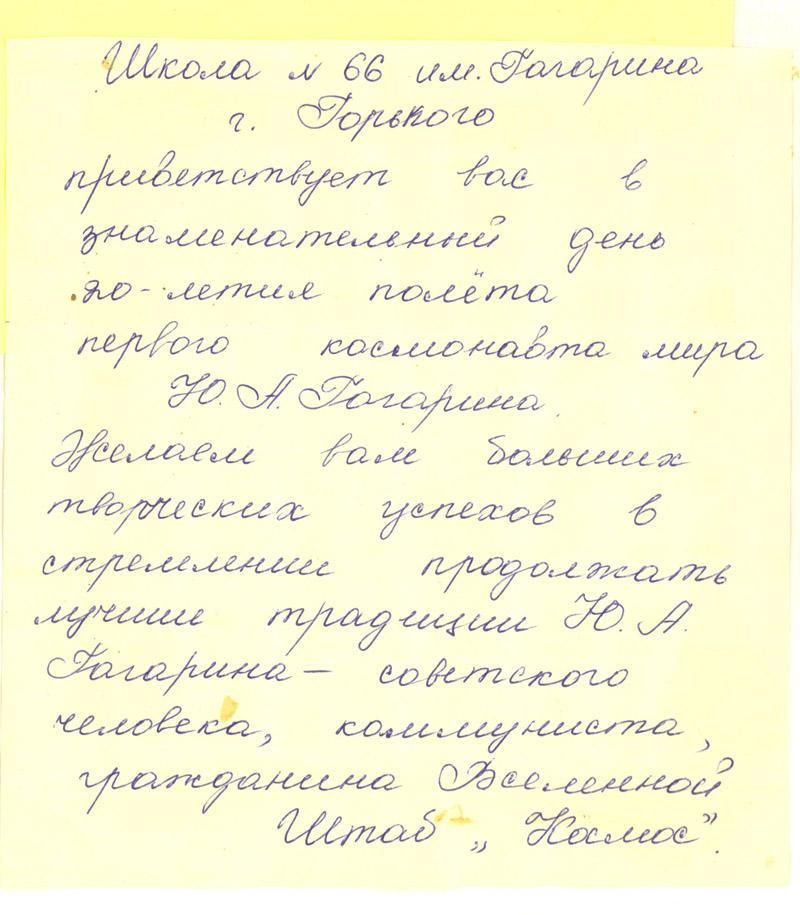 Школа № 66 им. Гагарина
г. Горького
приветствует вас в
знаменательный день
20-летия полёта
первого космонавта мира
Ю. А. Гагарина.
Желаем вам больших
творческих успехов в
стремлении продолжать
лучшие традиции Ю. А.
Гагарина — советского
человека, коммуниста,
гражданина Вселенной
Штаб „Космос".